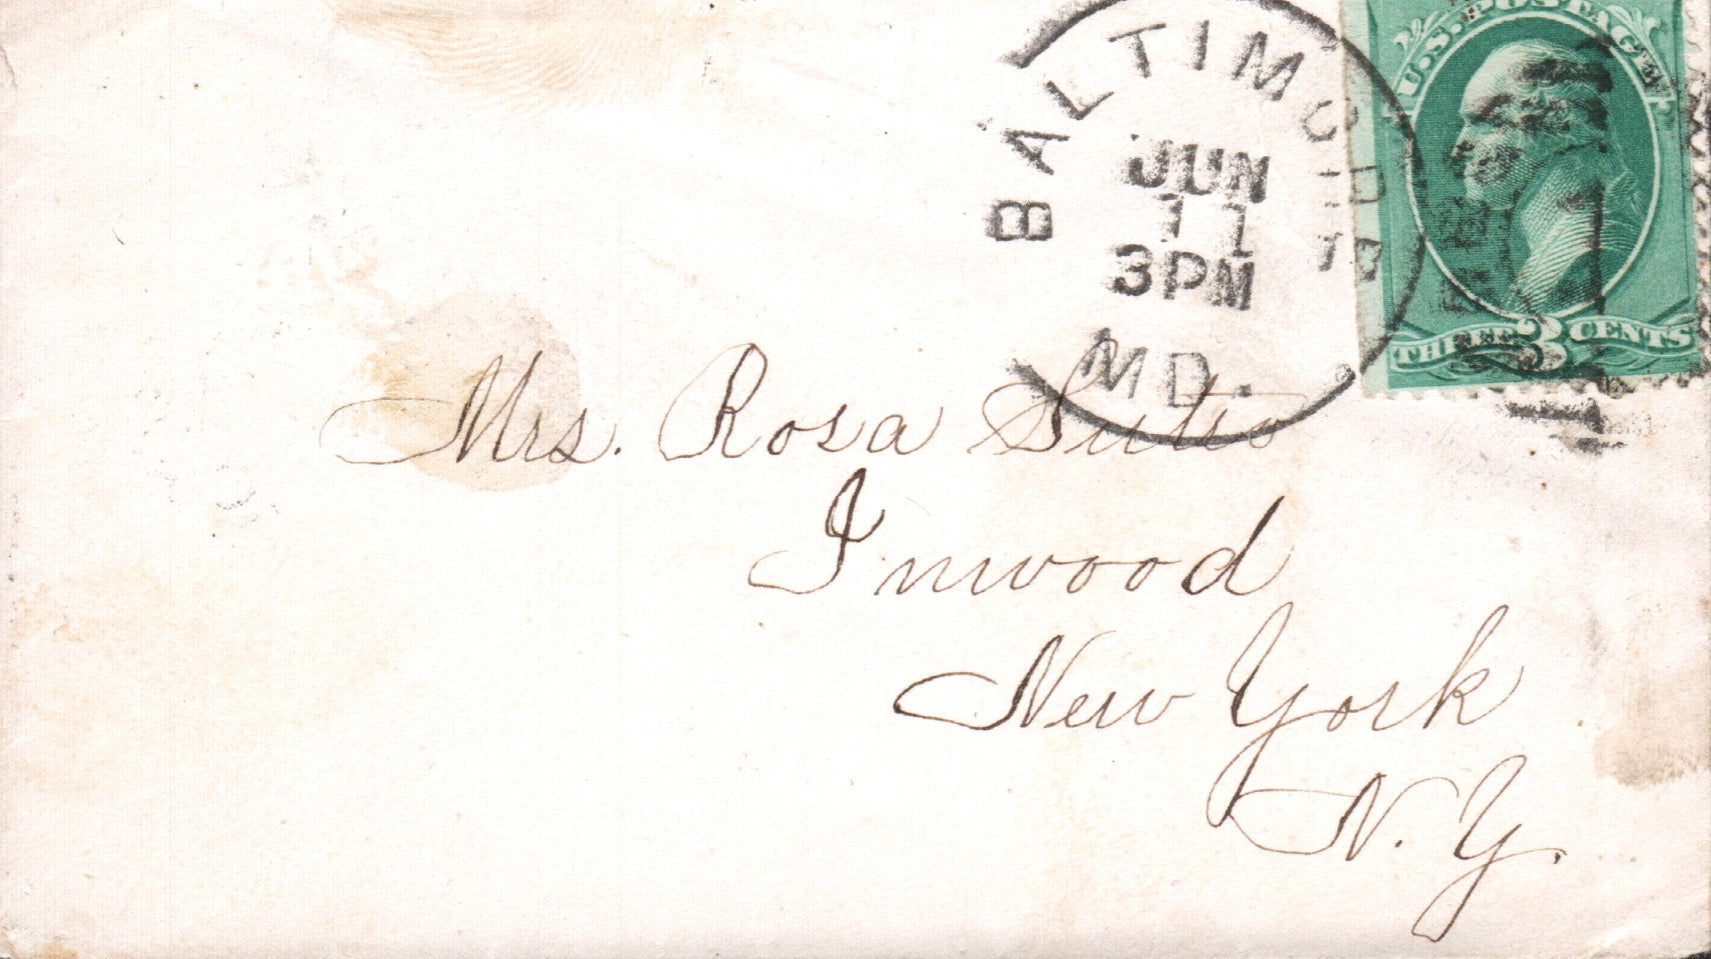 U.S. POSTAGE
THREE 3 CENTS
BALTIMORE
JUN
11
3PM
MD.
Mrs. Rosa
Inwood
New York
N. Y.